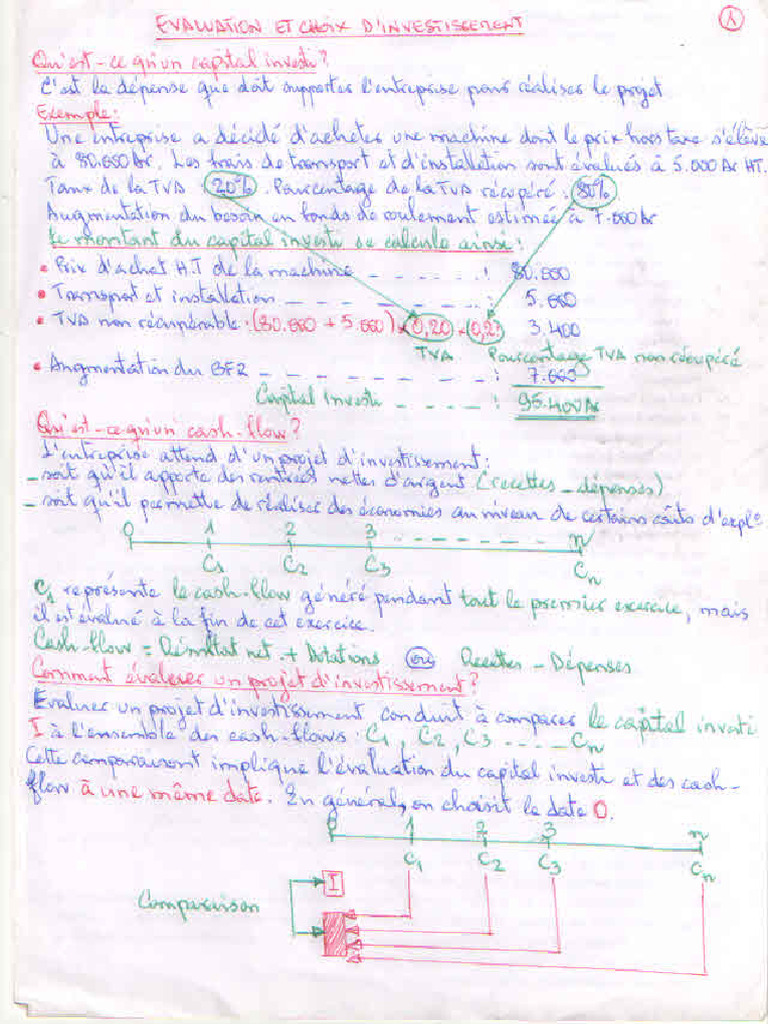 EVALUATION ET CHOIX D'INVESTISSEMENT
1
Qu'est-ce qu'un capital investi?
C'est la dépense que doit supporter l'entreprise pour réaliser le projet
Exemple:
Une entreprise a décidé d'acheter une machine dont le prix hors taxe s'élève
à 80.000 Ar. Les frais de transport et d'installation sont évalués à 5.000 Ar HT.
Taux de la TVA : 20%. Pourcentage de la TVA récupéré : 80%
Augmentation du besoin en fonds de roulement estimée à 7.000 Ar
Le montant du capital investi se calcule ainsi:
• Prix d'achat H.T de la machine _ _ _ _ _ _ : 80.000
• Transport et installation _ _ _ _ _ _ : 5.000
• TVA non récupérable : (80.000 + 5.000) × 0,20 × 0,2 : 3.400
TVA Pourcentage TVA non récupéré
• Augmentation du BFR _ _ _ _ _ _ : 7.000
Capital Investi _ _ _ _ : 95.400 Ar
Qu'est-ce qu'un cash-flow?
L'entreprise attend d'un projet d'investissement:
- soit qu'il apporte des rentrées nettes d'argent (recettes - dépenses)
- soit qu'il permette de réaliser des économies au niveau de certains coûts d'explo
0 1 2 3 - - - - - - n
C1 C2 C3 Cn
C1 représente le cash-flow généré pendant tout le premier exercice, mais
il est évalué à la fin de cet exercice.
Cash-flow = Résultat net + Dotations ou Recettes - Dépenses
Comment évaluer un projet d'investissement?
Evaluer un projet d'investissement conduit à comparer le capital investi
I à l'ensemble des cash-flows : C1, C2, C3 - - - - Cn
Cette comparaison implique l'évaluation du capital investi et des cash-
flow à une même date. En général, on choisit la date 0.
0 1 2 3 n
C1 C2 C3 Cn
I
Comparaison